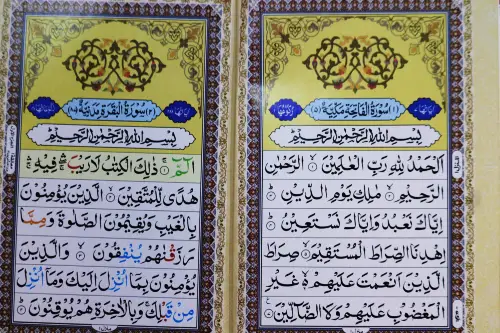 سُوْرَةُ الْفَاتِحَةِ مَكِّيَّةٌ
بِسْمِ اللّٰهِ الرَّحْمٰنِ الرَّحِيْمِ
اَلْحَمْدُ لِلّٰهِ رَبِّ الْعٰلَمِيْنَ الرَّحْمٰنِ
الرَّحِيْمِ مٰلِكِ يَوْمِ الدِّيْنِ
اِيَّاكَ نَعْبُدُ وَاِيَّاكَ نَسْتَعِيْنُ
اِهْدِنَا الصِّرَاطَ الْمُسْتَقِيْمَ صِرَاطَ
الَّذِيْنَ اَنْعَمْتَ عَلَيْهِمْ غَيْرِ
الْمَغْضُوْبِ عَلَيْهِمْ وَلَا الضَّآلِّيْنَ
سُوْرَةُ الْبَقَرَةِ مَدَنِيَّةٌ
بِسْمِ اللّٰهِ الرَّحْمٰنِ الرَّحِيْمِ
الٓمّٓ ذٰلِكَ الْكِتٰبُ لَا رَيْبَ فِيْهِ
هُدًى لِّلْمُتَّقِيْنَ الَّذِيْنَ يُؤْمِنُوْنَ
بِالْغَيْبِ وَيُقِيْمُوْنَ الصَّلٰوةَ وَمِمَّا
رَزَقْنٰهُمْ يُنْفِقُوْنَ وَالَّذِيْنَ
يُؤْمِنُوْنَ بِمَآ اُنْزِلَ اِلَيْكَ وَمَآ اُنْزِلَ
مِنْ قَبْلِكَ وَبِالْاٰخِرَةِ هُمْ يُوْقِنُوْنَ